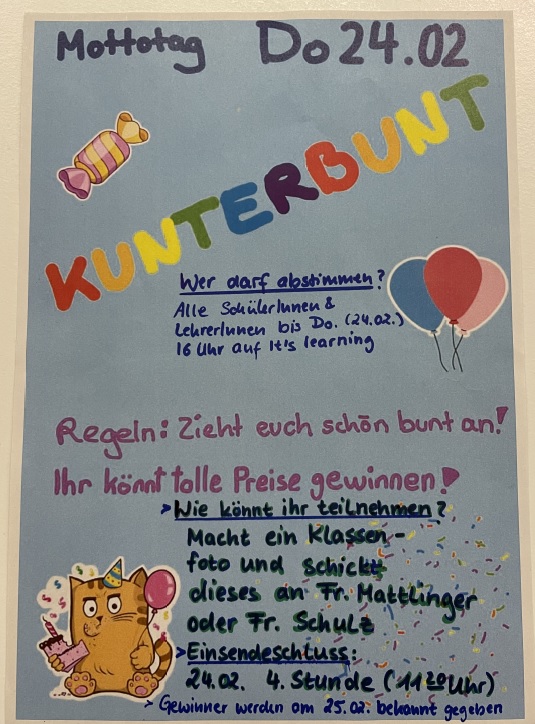 Mottotag Do 24.02
KUNTERBUNT
Wer darf abstimmen?
Alle SchülerInnen &
LehrerInnen bis Do. (24.02.)
16 Uhr auf It's learning
Regeln: Zieht euch schön bunt an!
Ihr könnt tolle Preise gewinnen!
> Wie könnt ihr teilnehmen?
Macht ein Klassen-
foto und schickt
dieses an Fr. Mattlinger
oder Fr. Schulz
> Einsendeschluss:
24.02. 4. Stunde (11 20 Uhr)
> Gewinner werden am 25.02. bekannt gegeben